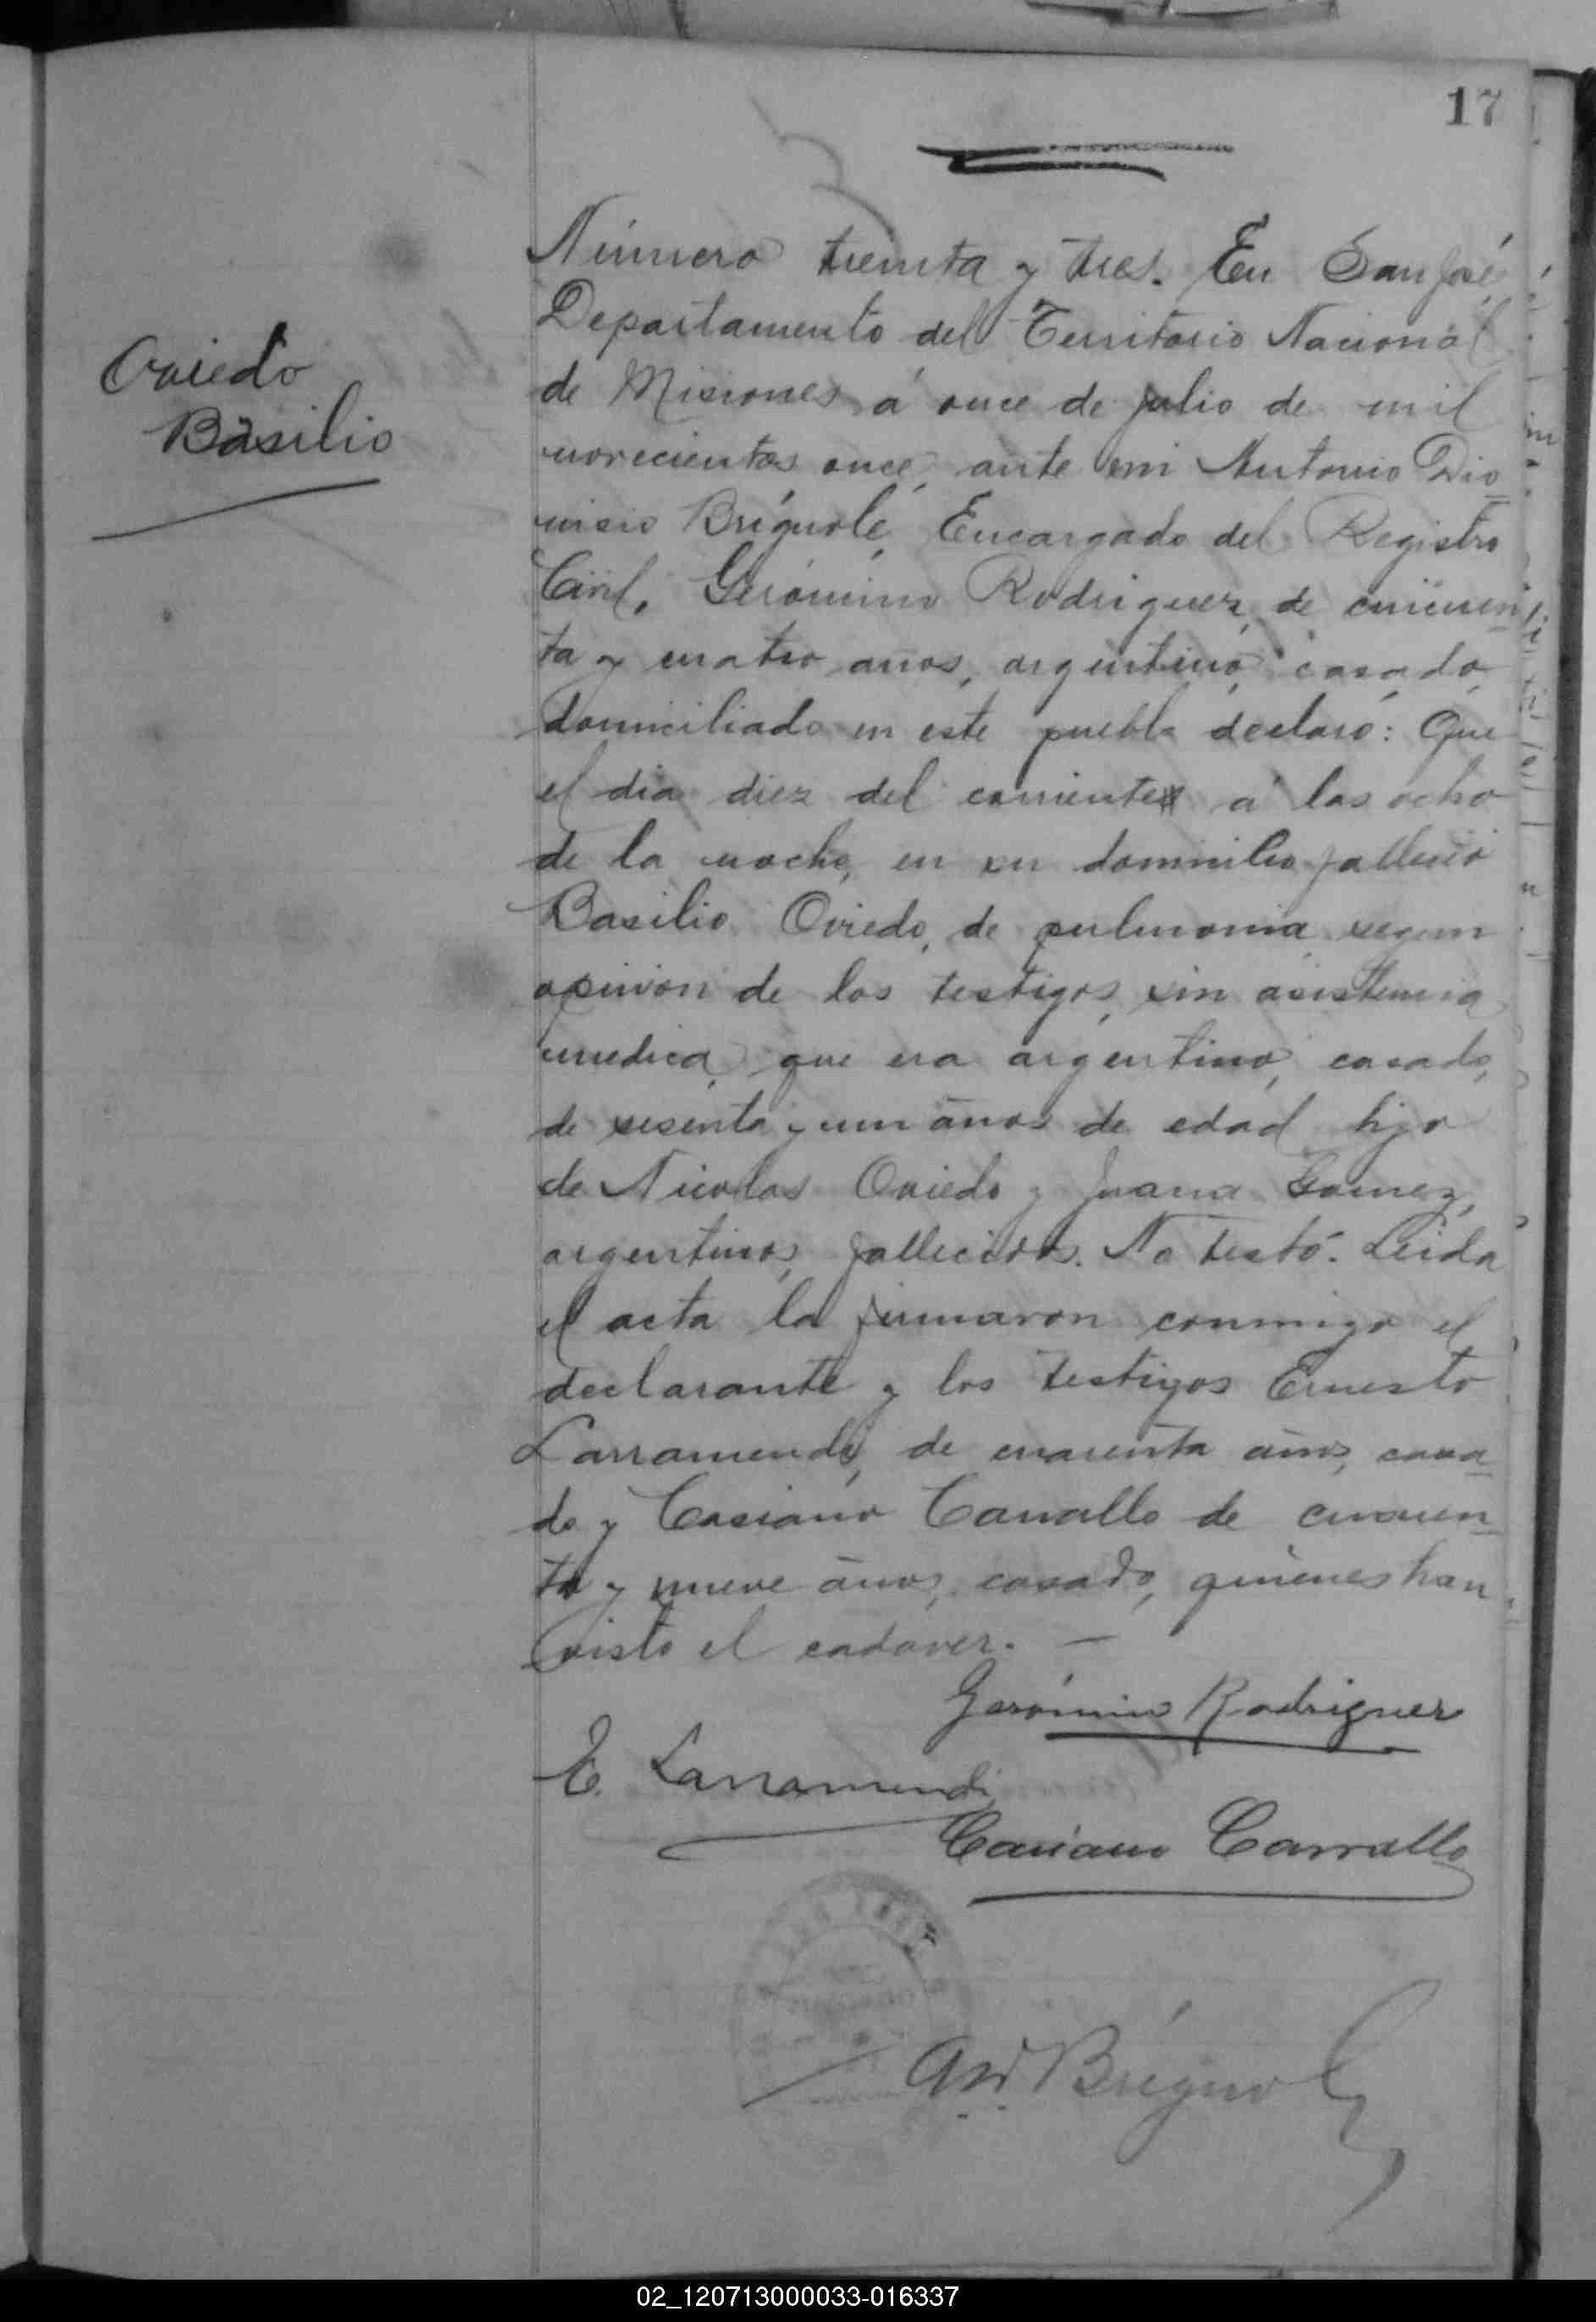 17
Número treinta y tres. En San José
Departamento del Territorio Nacional
Oviedo
Basilio
de Misiones á once de julio de mil
novecientos once, ante mi Antonio Dio-
nisio Brignolé, Encargado del Registro
Civil, Gerónimo Rodriguez, de cincuen-
ta y cuatro años, argentino, casado,
domiciliado en este pueblo declaró: Que
el dia diez del corriente á las ocho
de la noche, en su domicilio falleció
Basilio Oviedo, de pulmonia segun
opinion de los testigos, sin asistencia
medica, que era argentino, casado,
de sesenta y un años de edad hijo
de Nicolas Oviedo y Juana Gomez,
argentinos, fallecidos. No testó. Leida
el acta la firmaron conmigo el
declarante y los testigos Ernesto
Larramendi, de cuarenta años, casa-
do y Casiano Carvallo de cuaren-
ta y nueve años, casado, quienes han
visto el cadaver. —
Gerónimo Rodriguez
E. Larramendi
Casiano Carvallo
Brignolé
02_120713000033-016337